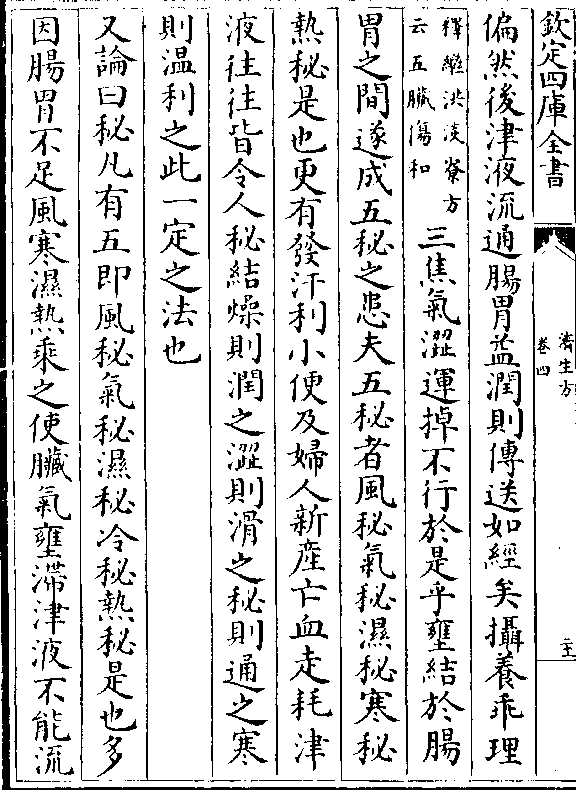 欽定四庫全書
濟生方
卷四
偏然後津液流通腸胃益潤則傳送如經矣攝養乖理
釋繼洪淡寮方
云五臟傷和
三焦氣澀運掉不行於是乎壅結於腸
胃之間遂成五秘之患夫五秘者風秘氣秘濕秘寒秘
熱秘是也更有發汗利小便及婦人新産亡血走耗津
液往往皆令人秘結燥則潤之澀則滑之秘則通之寒
則温利之此一定之法也
又論曰秘凡有五即風秘氣秘濕秘冷秘熱秘是也多
因腸胃不足風寒濕熱乘之使臟氣壅滯津液不能流